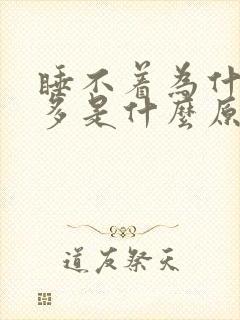 睡不着為什
多是什麼原
道友祭天